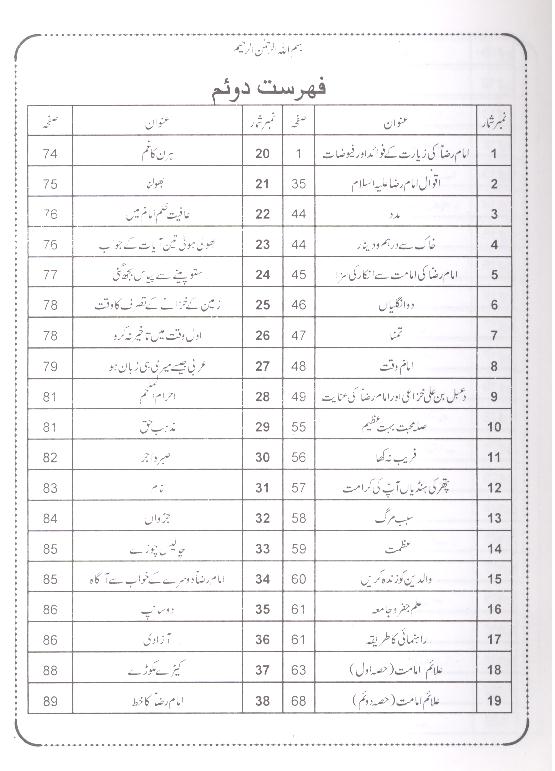 بسم اللہ الرحمٰن الرحیم
فہرست دوئم
نمبر شمار عنوان صفحہ نمبر شمار عنوان صفحہ
1 امام رضاؑ کی زیارت کے فوائد اور فیوضات 1 20 ہرن کا غم 74
2 اقوال امام رضا علیہ اسلام 35 21 بھولنا 75
3 مدد 44 22 عافیت حکم امام میں 76
4 خاک سے درہم و دینار 44 23 کھوئی ہوئی تین آیات کے جواب 76
5 امام رضاؑ کی امامت سے انکار کی سزا 45 24 ستو پینے سے پیاس بجھ گئی 77
6 دو انگلیاں 46 25 زمین کے خزانے کے تصرف کا وقت 78
7 تمنا 47 26 اول وقت میں تاخیر نہ کرو 78
8 امام وقت 48 27 عربی جیسے میری ہی زبان ہو 79
9 دعبل بن علی خزاعی اور امام رضاؑ کی عنایت 49 28 احرام 81
10 صلہ محبت بہت عظیم 55 29 مذہب حق 81
11 فریب نہ کھا 56 30 صبر و اجر 82
12 پتھر کی ہنڈیاں آپؑ کی کرامت 57 31 نام 83
13 سبب مرگ 58 32 جڑواں 84
14 عظمت 59 33 چالیس چوزے 85
15 والدین کو زندہ کریں 60 34 امام رضاؑ دوسرے کے خواب سے آگاہ 85
16 علم جفر و جامعہ 61 35 دو سانپ 86
17 راہنمائی کا طریقہ 61 36 آزادی 86
18 علائم امامت (حصہ اول) 63 37 کیڑے مکوڑے 88
19 علائم امامت (حصہ دوئم) 68 38 امام رضاؑ کا خط 89